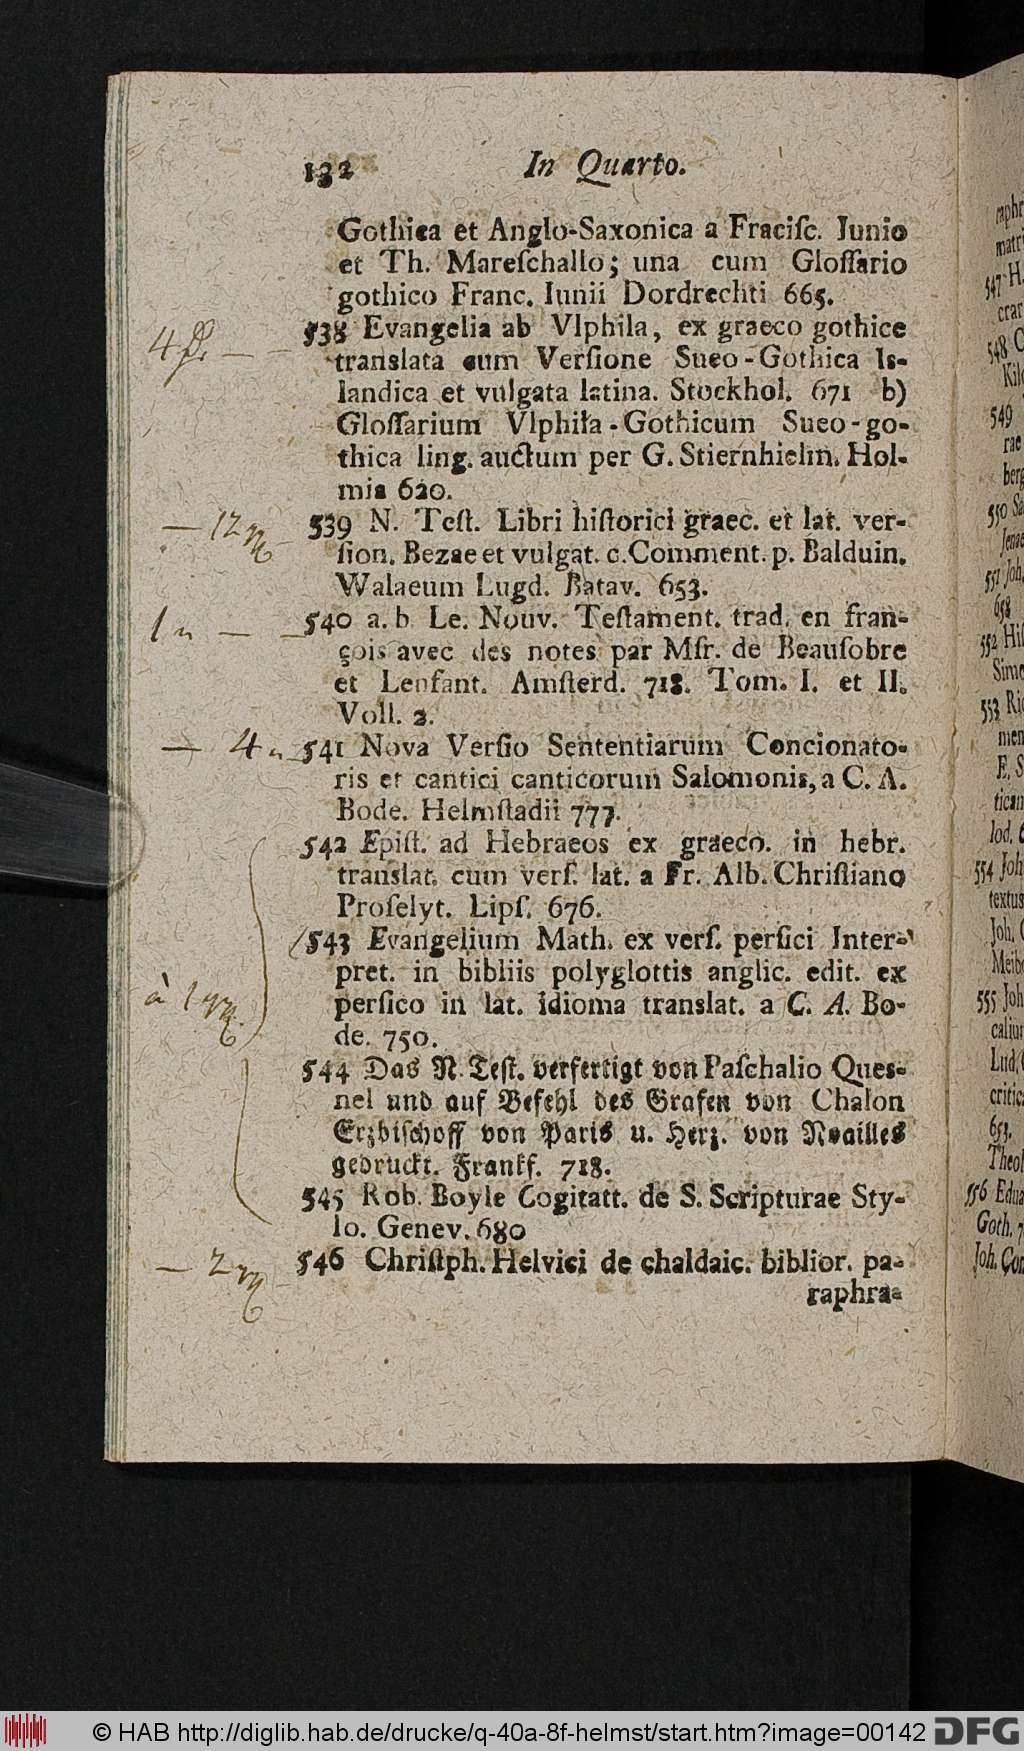 132 In Quarto.
Gothica et Anglo-Saxonica a Fraciſc. Iunio
et Th. Mareſchallo; una cum Gloſſario
gothico Franc. Iunii Dordrechti 665.
4
538 Evangelia ab Vlphila, ex graeco gothice
translata cum Verſione Sueo-Gothica Is-
landica et vulgata latina. Stockhol. 671 b)
Gloſſarium Vlphila-Gothicum Sueo-go-
thica ling. auctum per G. Stiernhielm. Hol-
mia 620.
— 12
539 N. Teſt. Libri hiſtorici graec. et lat. ver-
ſion. Bezae et vulgat. c. Comment. p. Balduin.
Walaeum Lugd. Batav. 653.
1 — —
540 a. b Le. Nouv. Teſtament. trad. en fran-
çois avec des notes par Mſr. de Beauſobre
et Lenfant. Amſterd. 718. Tom. I. et II.
Voll. 2.
— 4
541 Nova Verſio Sententiarum Concionato-
ris et cantici canticorum Salomonis, a C. A.
Bode. Helmſtadii 777.
542 Epiſt. ad Hebraeos ex graeco. in hebr.
translat. cum verſ. lat. a Fr. Alb. Chriſtiano
Proſelyt. Lipſ. 676.
543 Evangelium Math. ex verſ. perſici Inter-
pret. in bibliis polyglottis anglic. edit. ex
à 1
perſico in lat. idioma translat. a C. A. Bo-
de. 750.
544 Das N. Teſt. verfertigt von Paſchalio Ques-
nel und auf Befehl des Grafen von Chalon
Erzbiſchoff von Paris u. Herz. von Noailles
gedruckt. Frankf. 718.
545 Rob. Boyle Cogitatt. de S. Scripturae Sty-
lo. Genev. 680
— 2
546 Chriſtph. Helvici de chaldaic. biblior. pa-
raphra-
547 H.
548
549
550
552
553
554 Joh
555 Joh
556
© HAB http://diglib.hab.de/drucke/q-40a-8f-helmst/start.htm?image=00142 DFG